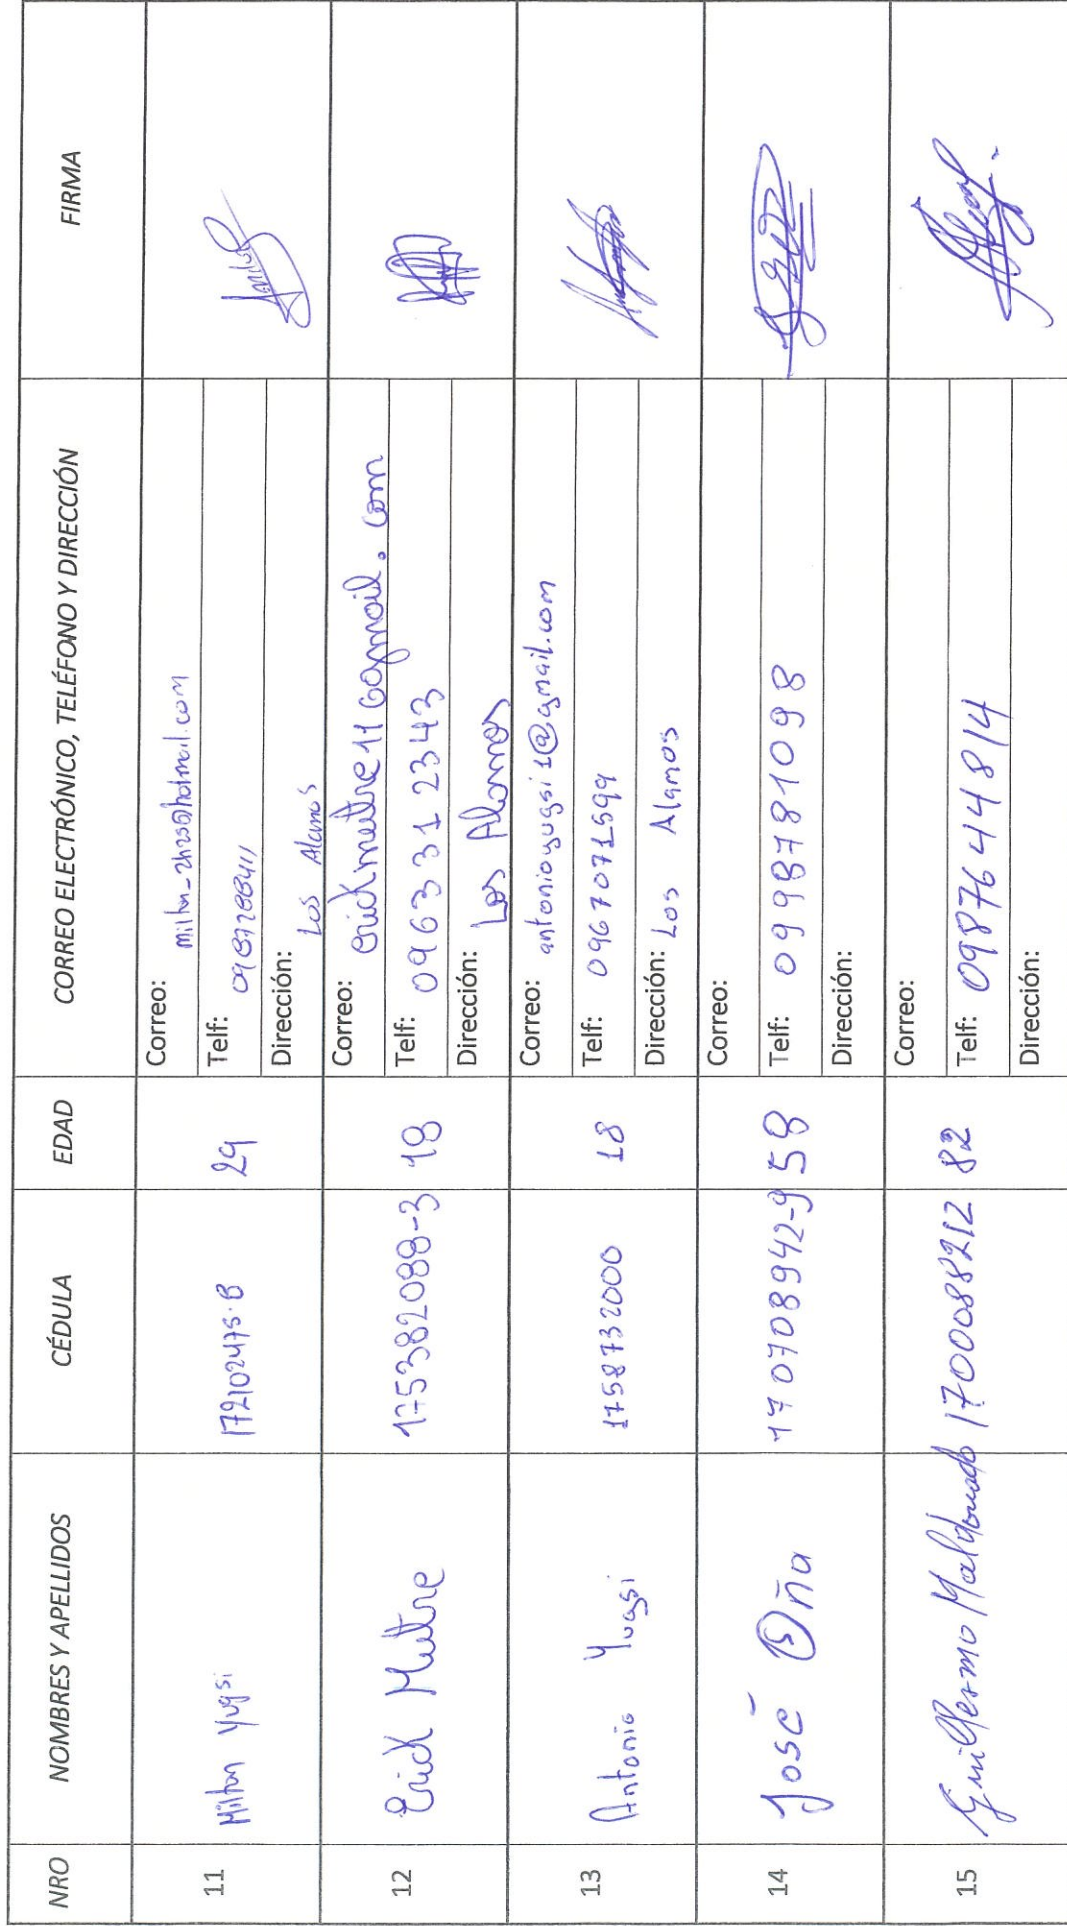 NRO NOMBRES Y APELLIDOS CÉDULA EDAD CORREO ELECTRÓNICO, TELÉFONO Y DIRECCIÓN FIRMA
11 Milton Yugsi 172102475-8 29
Correo: milton_2h256@hotmail.com
Telf:
Dirección: Los Alamos
12 Erick Mettre 175382088-3 18
Correo: erickmettre11@gmail.com
Telf: 0963312343
Dirección: Los Alamos
13 Antonio Yugsi 1758732000 18
Correo: antonioyugsi1@gmail.com
Telf: 0967071599
Dirección: Los Alamos
14 José Oña 170708942-9 58
Correo:
Telf: 0998781098
Dirección:
15 Guillermo Maldonado 1700088212 82
Correo:
Telf: 0987644814
Dirección: